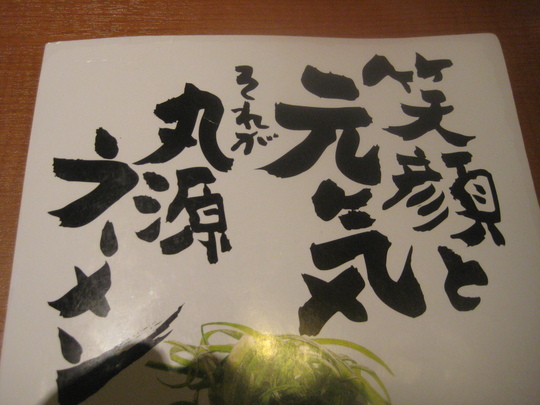 笑顔と
元気
それが
丸源
ラーメン